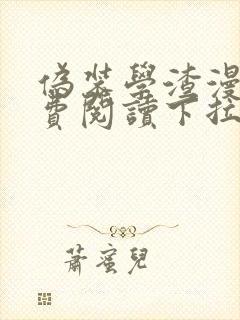 偽裝學渣漫
費閱讀下拉
蕭蜜兒